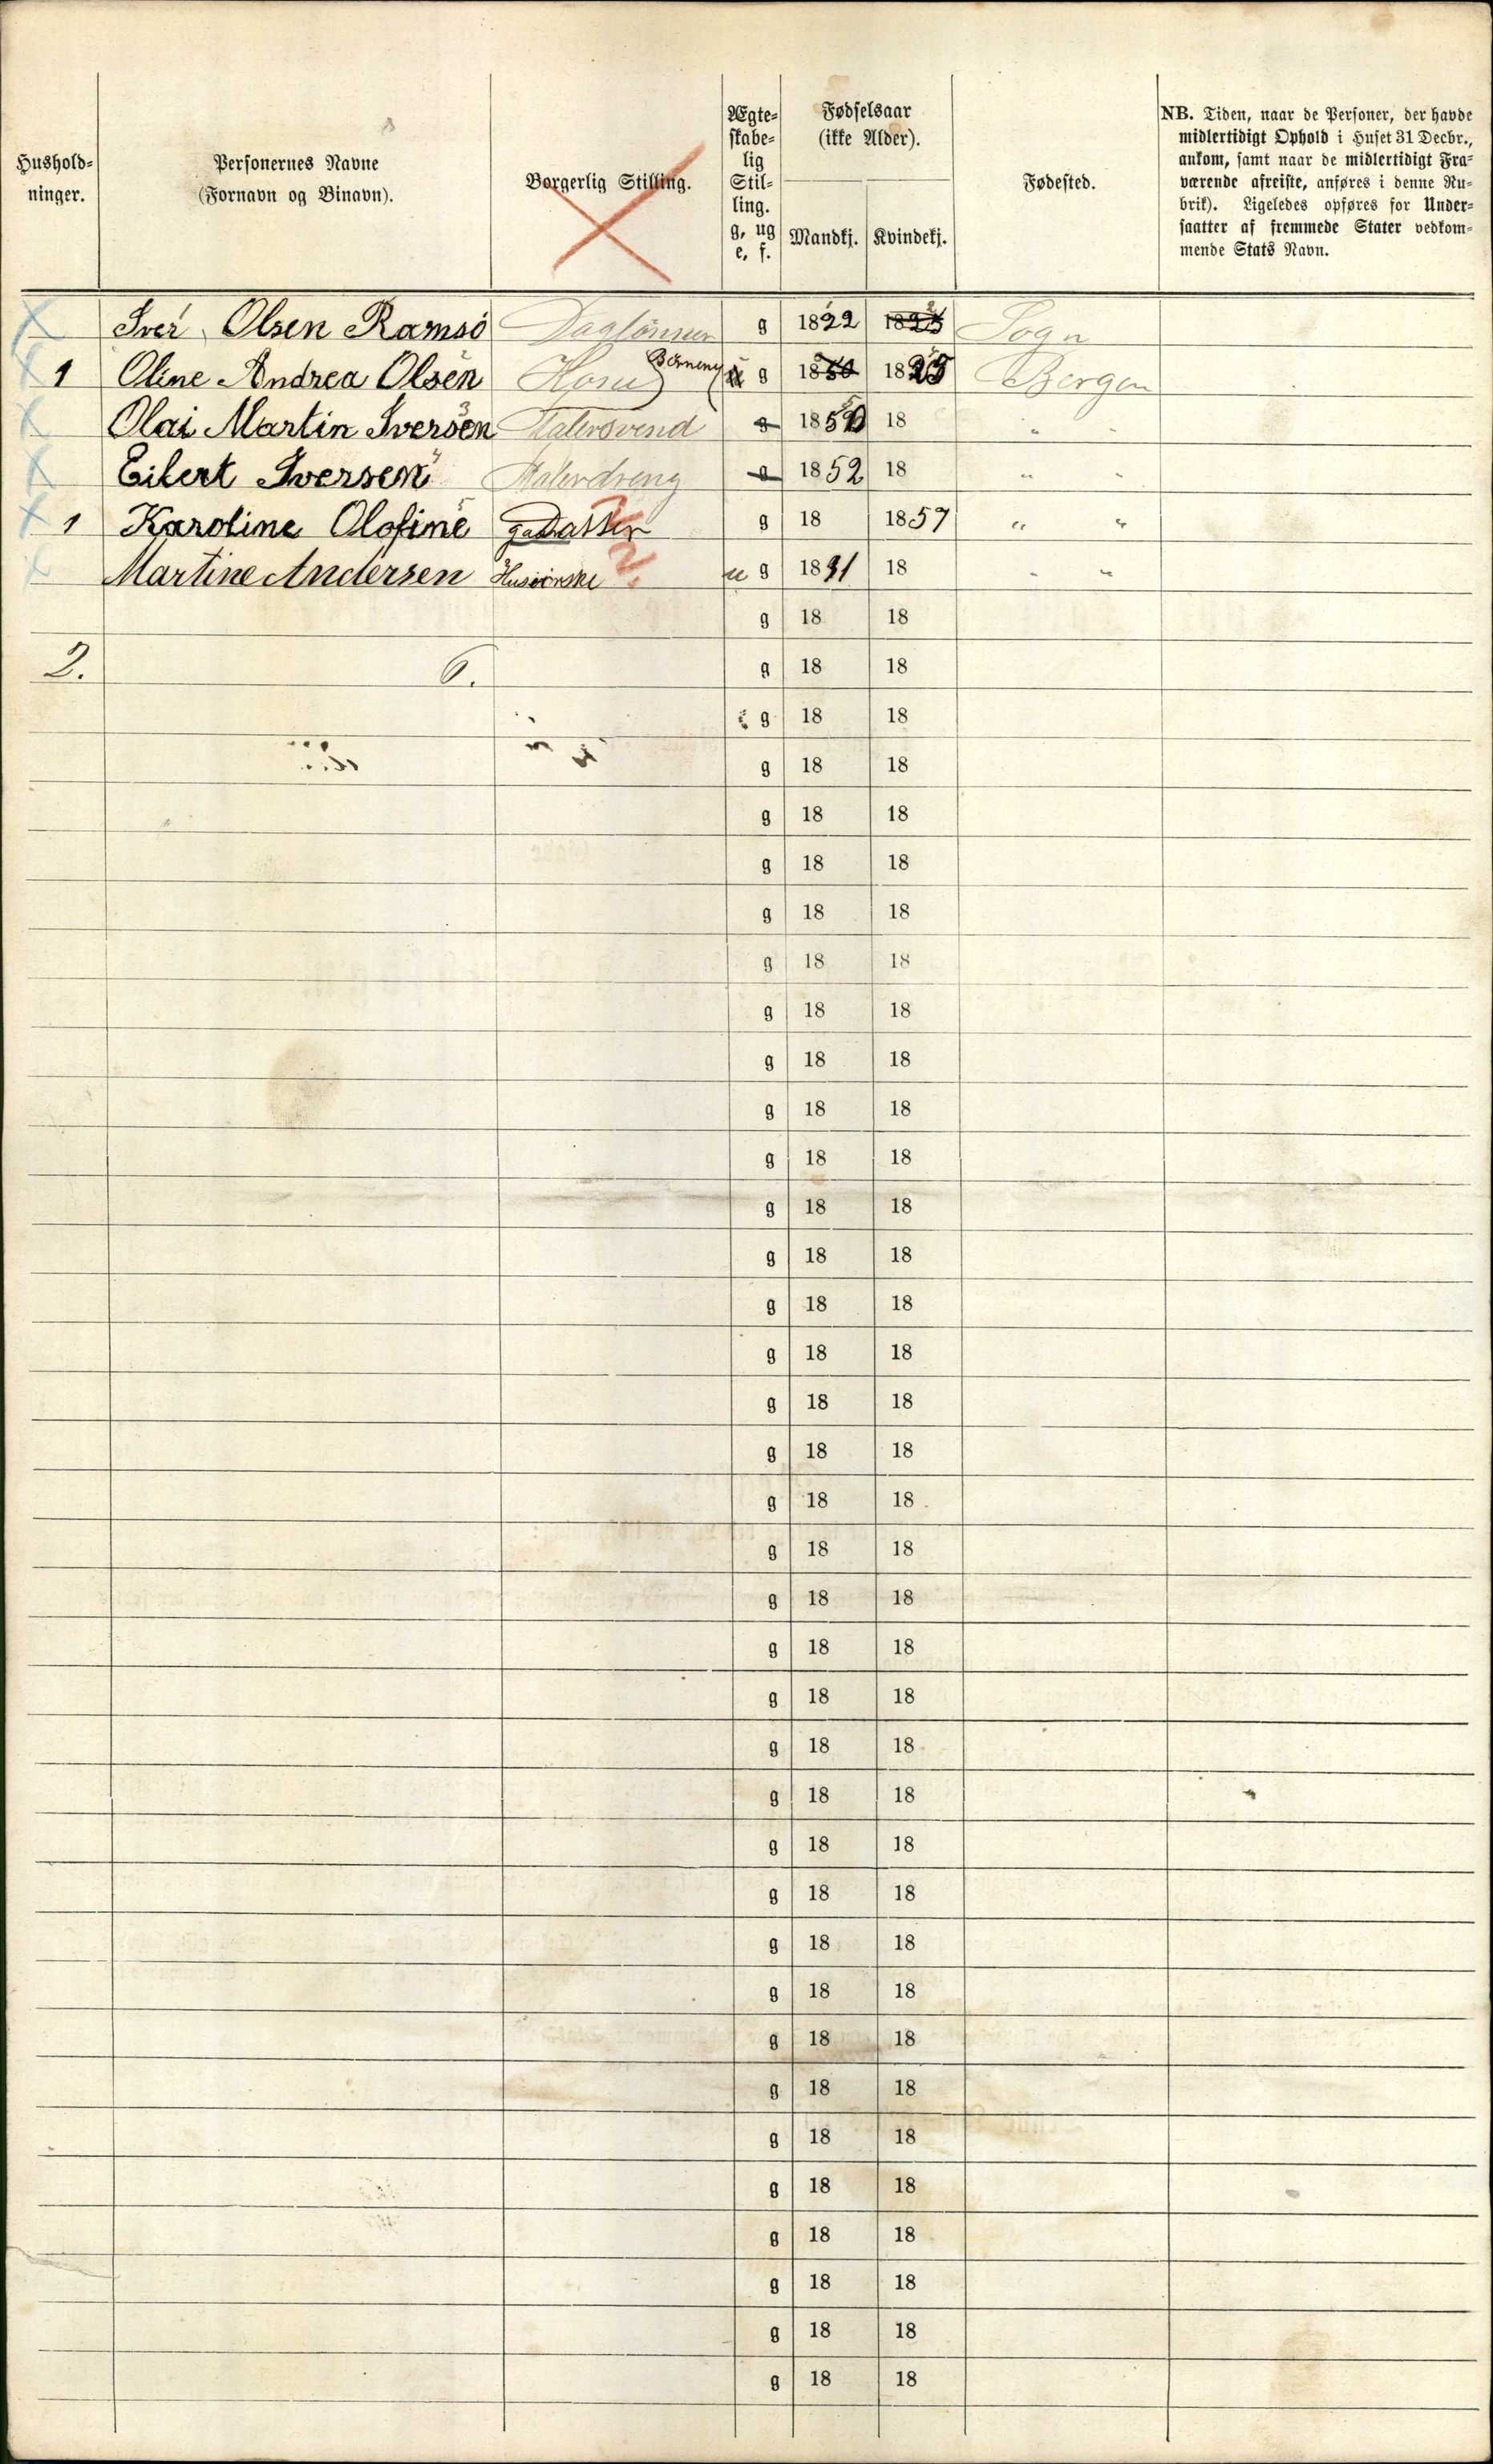 Hushold-
ninger.
Personernes Navne
(Fornavn og Binavn).
Borgerlig Stilling.
Ægte-
skabe-
lig
Stil-
ling.
g, ug
e, f.
Fødselsaar
(ikke Alder).
Mandkj. Kvindekj.
Fødested.
NB. Tiden, naar de Personer, der havde
midlertidigt Ophold i Huset 31 Decbr.,
ankom, samt naar de midlertidigt Fra-
værende afreiste, anføres i denne Ru-
brik). Ligeledes opføres for Under-
saatter af fremmede Stater vedkom-
mende Stats Navn.
Iver Olsen Ramsö g 1822 Sogn
1 Oline Andrea Olsen g 18 1825 Bergen
Olai Martin Iversen Malersvend g 1850 18 " "
Eilert Iversen Malerdreng g 1852 18 " "
1 Karoline Olofine g 18 1857 " "
Martine Andersen g 1831 18 " "
g 18 18
2. 6. g 18 18
g 18 18
g 18 18
g 18 18
g 18 18
g 18 18
g 18 18
g 18 18
g 18 18
g 18 18
g 18 18
g 18 18
g 18 18
g 18 18
g 18 18
g 18 18
g 18 18
g 18 18
g 18 18
g 18 18
g 18 18
g 18 18
g 18 18
g 18 18
g 18 18
g 18 18
g 18 18
g 18 18
g 18 18
g 18 18
g 18 18
g 18 18
g 18 18
g 18 18
g 18 18
g 18 18